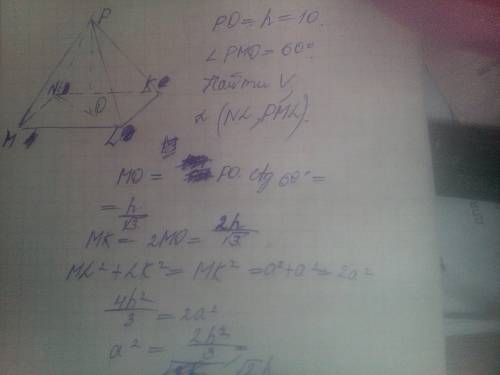 P
N
K
O
M
L
PO = h = 10.
∠PMO = 60°.
Найти V,
∠ (NL, PML).
MO = PO · ctg 60° =
= h/√3
MK = 2MO = 2h/√3.
ML² + LK² = MK² = a² + a² = 2a²
4h²/3 = 2a²
a² = 2h²/3 =